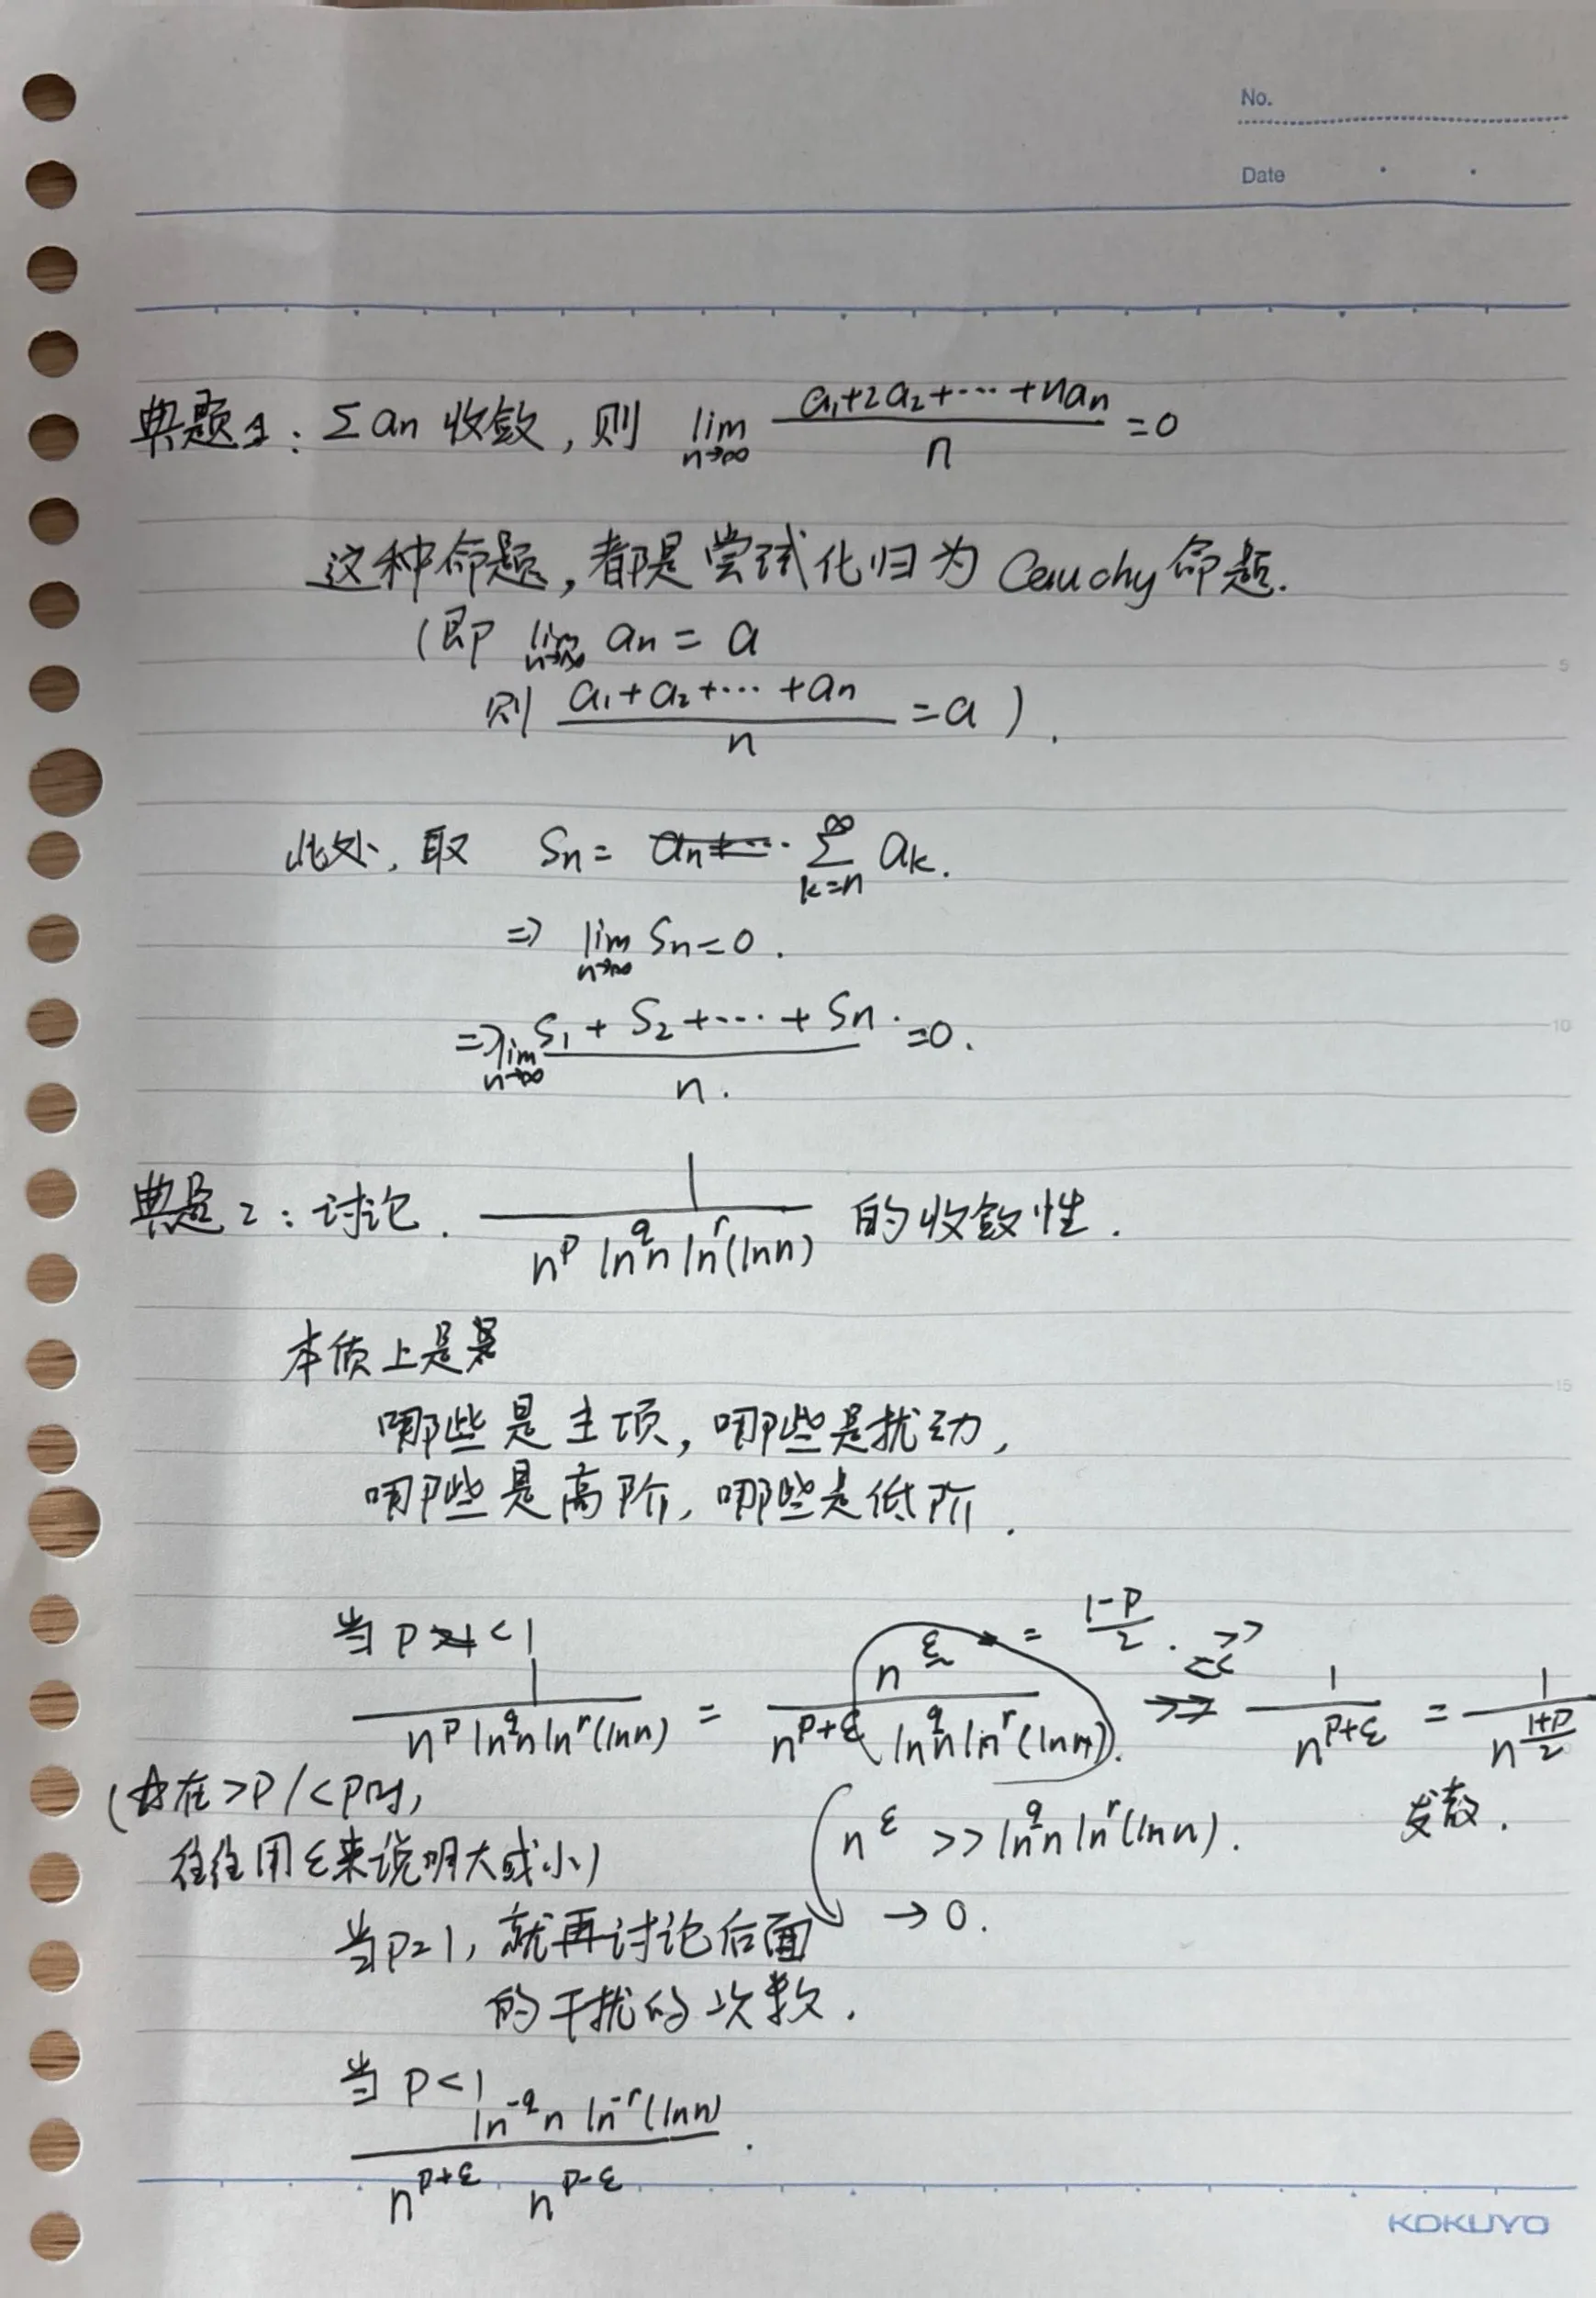 No.
Date
典题1：Σan 收敛，则 lim n→∞ (a₁+2a₂+⋯+nan)/n =0
这种命题，都是尝试化归为 Cauchy 命题.
(即 lim n→∞ an = a
则 (a₁+a₂+⋯+an)/n =a).
此处，取 Sn= Σ_{k=n}^{∞} ak.
⇒ lim n→∞ Sn=0.
⇒ lim n→∞ (S₁+S₂+⋯+Sn)/n =0.
典题2：讨论 1/(n^p ln^q n ln^r(lnn)) 的收敛性.
本质上是
哪些是主项，哪些是扰动，
哪些是高阶，哪些是低阶.
当 p<1
1/(n^p ln^q n ln^r(lnn)) = n^ε/(n^{p+ε} ln^q n ln^r(lnn)) >> 1/n^{p+ε} = 1/n^{(1+p)/2}
ε = (1-p)/2.
(在>p/<p时，
往往用ε来说明大或小)
n^ε >> ln^q n ln^r(lnn).
发散.
→0.
当p=1，就再讨论后面
的干扰的次数.
当 p<1
ln^{-q} n ln^{-r}(lnn)
n^{p+ε} n^{p-ε}
5
10
15
KOKUYO